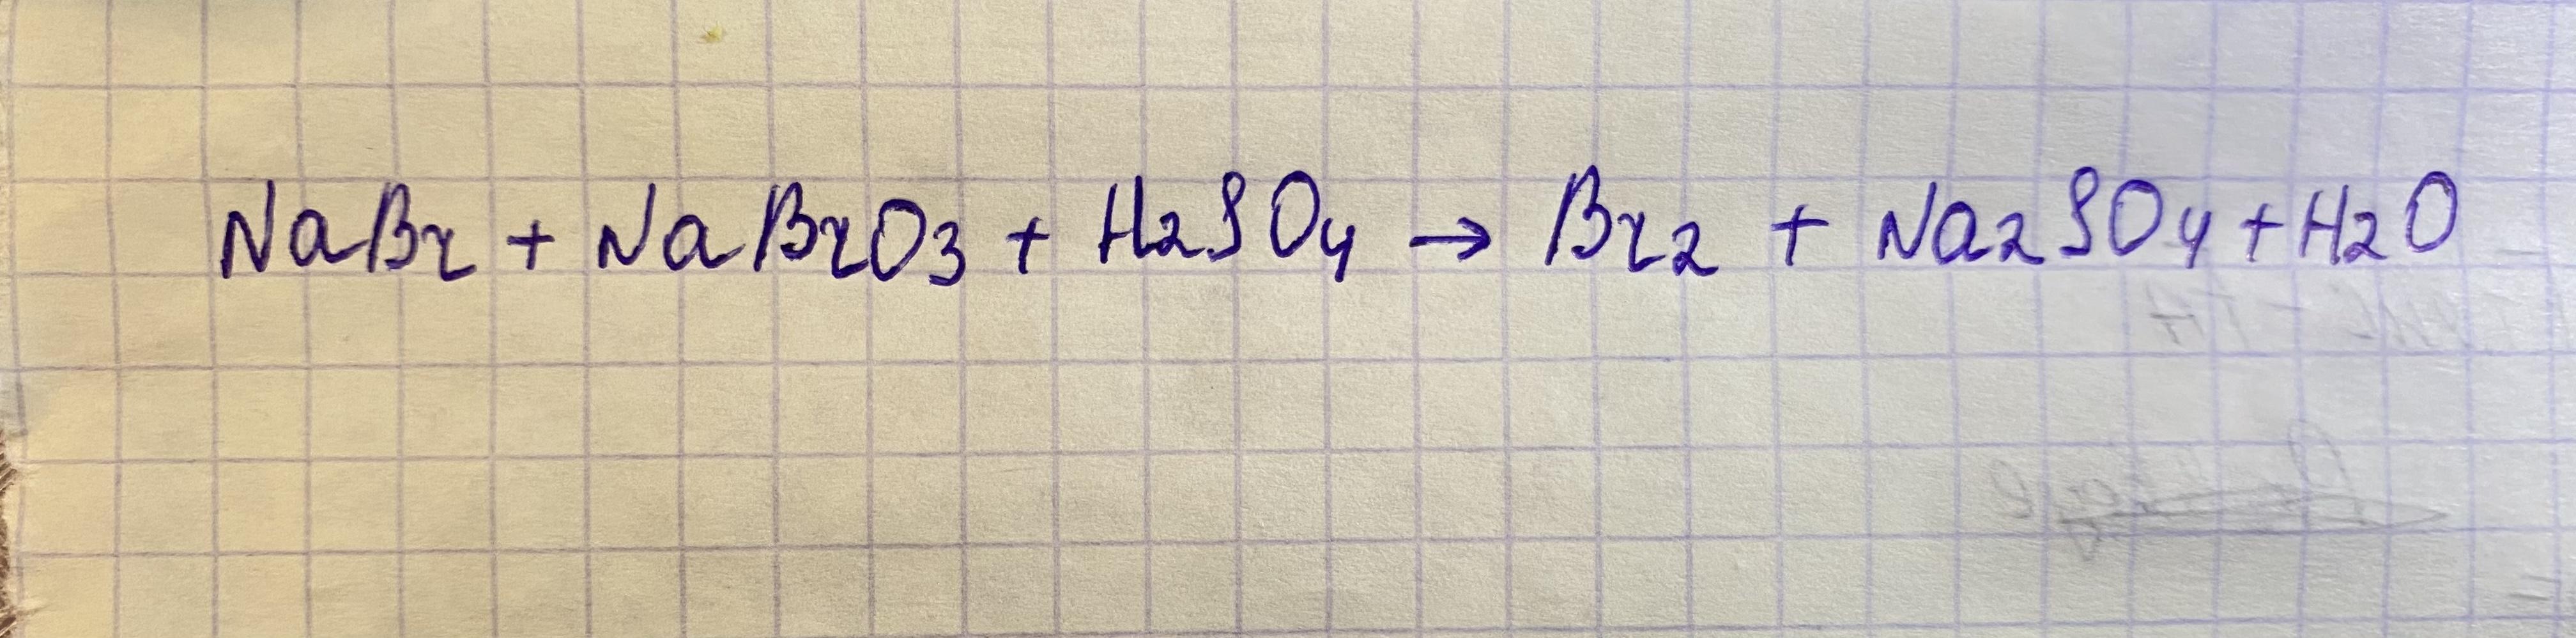 NaBr + NaBrO3 + H2SO4 → Br2 + Na2SO4 + H2O